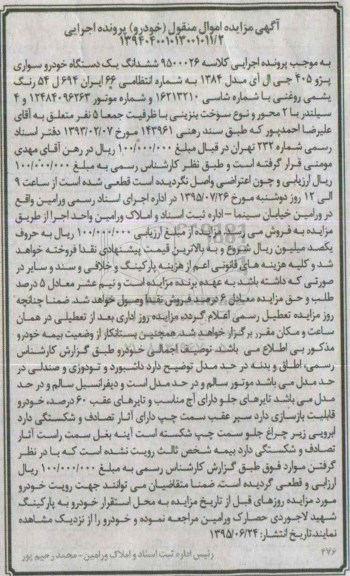 آگهی مزایده اموال منقول (خودرو) پرونده اجرایی
۱۳۹۴۰۴۰۰۱۰۱۳۰۰۱۰۱۱/۲
به موجب پرونده اجرایی کلاسه ۹۵۰۰۰۲۶ ششدانگ یک دستگاه خودرو سواری
پژو ۴۰۵ جی ال ای مدل ۱۳۸۴ به شماره انتظامی ۶۶ ایران ۶۹۴ ل ۵۴ رنگ
یشمی روغنی با شماره شاسی ۱۶۲۱۳۲۱۰ و شماره موتور ۱۲۴۸۴۰۹۶۲۶۳ و ۴
سیلندر با ۲ محور و نوع سوخت بنزینی با ظرفیت جمعا ۵ نفر متعلق به آقای
علیرضا احمدپور که طبق سند رهنی ۱۴۳۹۶۱ مورخ ۱۳۹۳/۰۲/۰۷ دفتر اسناد
رسمی شماره ۲۳۲ تهران در قبال مبلغ ۱۰۰/۰۰۰/۰۰۰ ریال در رهن آقای مهدی
مومنی قرار گرفته است و طبق نظر کارشناس رسمی به مبلغ ۱۰۰/۰۰۰/۰۰۰
ریال ارزیابی و چون اعتراضی واصل نگردیده است قطعی شده است از ساعت ۹
الی ۱۲ روز دوشنبه مورخ ۱۳۹۵/۰۷/۲۶ در اداره اجرای اسناد رسمی ورامین واقع
در ورامین خیابان سینما – اداره ثبت اسناد و املاک ورامین واحد اجرا از طریق
مزایده به فروش می رسد مزایده از مبلغ ارزیابی ۱۰۰/۰۰۰/۰۰۰ ریال به حروف
یکصد میلیون ریال شروع و به بالاترین قیمت پیشنهادی نقدا فروخته خواهد
شد و کلیه هزینه های قانونی اعم از هزینه پارکینگ و خلافی و سند و سایر در
صورتی که داشته باشد به عهده برنده مزایده است و نیم عشر معادل ۵ درصد
طلب و حق مزایده معادل درصد فروش نقدا وصول خواهد شد. ضمنا چنانچه
روز مزایده تعطیل رسمی اعلام گردد، مزایده روز اداری بعد از تعطیلی در همان
ساعت و مکان مقرر برگزار خواهد شد. همچنین بستانکار از وضعیت بیمه خودرو
مذکور بی اطلاع می باشد. توصیف اجمالی خودرو طبق گزارش کارشناس
رسمی: اطاق و بدنه در حد مدل توضیح دارد داشبورد و تودوزی و صندلی در
حد مدل می باشد موتور سالم و در حد مدل است و دیفرانسیل سالم و در حد
مدل می باشد تایرهای جلو دارای آج مناسب و تایرهای عقب ۶۰ درصد، خودرو
قابلیت بازسازی دارد سپر عقب سمت چپ دارای آثار تصادف و شکستگی دارد
ابرویی زیر چراغ جلو سمت چپ شکسته است آینه بغل سمت راست آثار
تصادف و شکستگی دارد بیمه شخص ثالث رویت نشده است که با در نظر
گرفتن موارد فوق طبق گزارش کارشناس رسمی به مبلغ ۱۰۰/۰۰۰/۰۰۰ ریال
ارزیابی و قطعی گردیده است. ضمنا متقاضیان می توانند جهت رویت خودرو
مورد مزایده روزهای قبل از تاریخ مزایده به محل استقرار خودرو به پارکینگ
شهید لاجوردی حصارک ورامین مراجعه نموده و خودرو را از نزدیک مشاهده
نمایند. تاریخ انتشار: ۱۳۹۵/۰۶/۲۴
۲۷۶ رئیس اداره ثبت اسناد و املاک ورامین - محمد رحیم پور